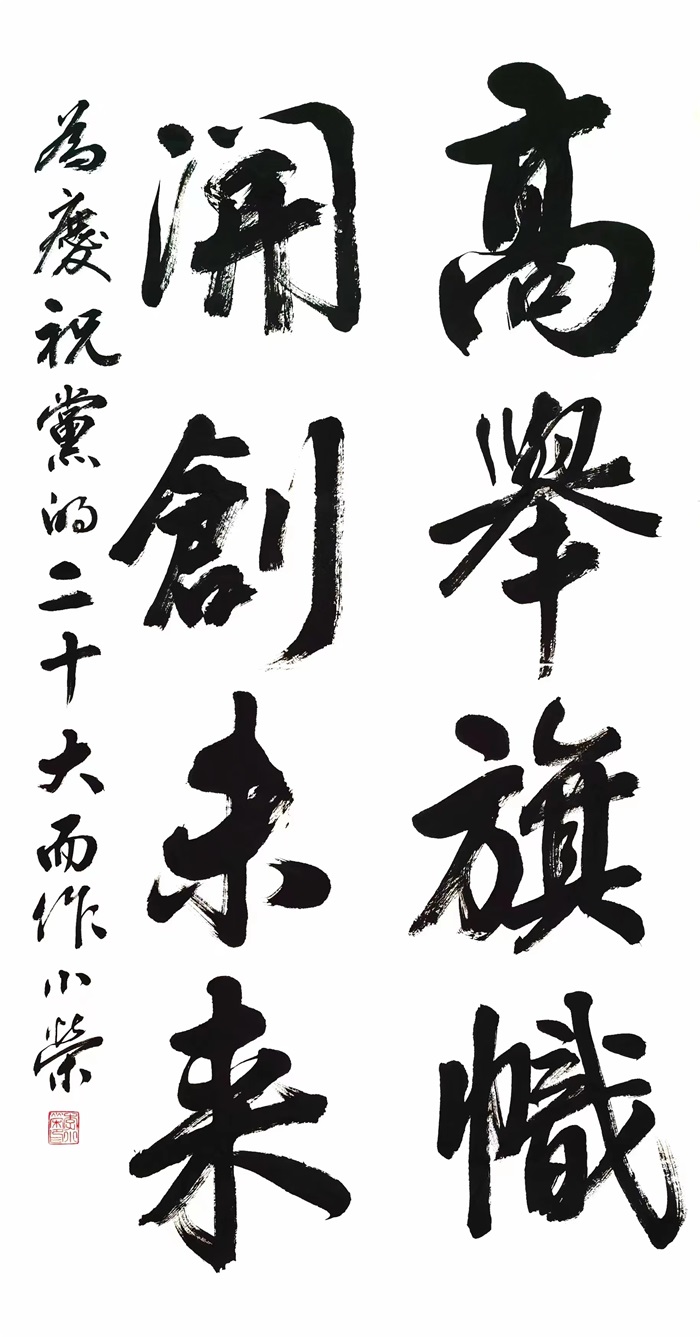 高舉旗幟
開創未来
為慶祝黨的二十大而作小榮